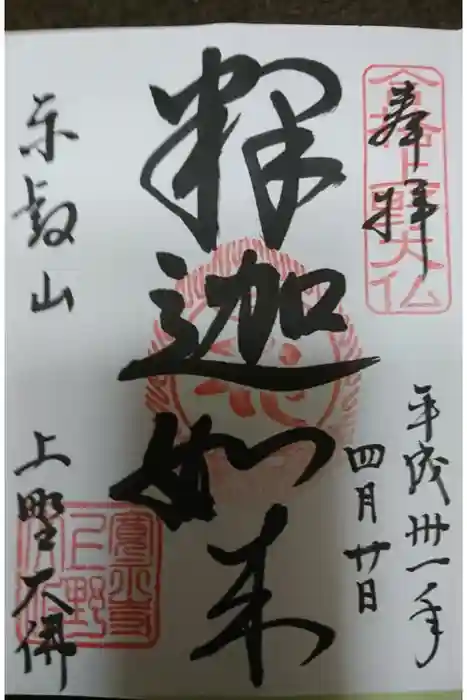 奉拝
合格上野大仏
平成卅一年
四月廿日
釋迦如来
東叡山
上野大佛
寛永寺
上野